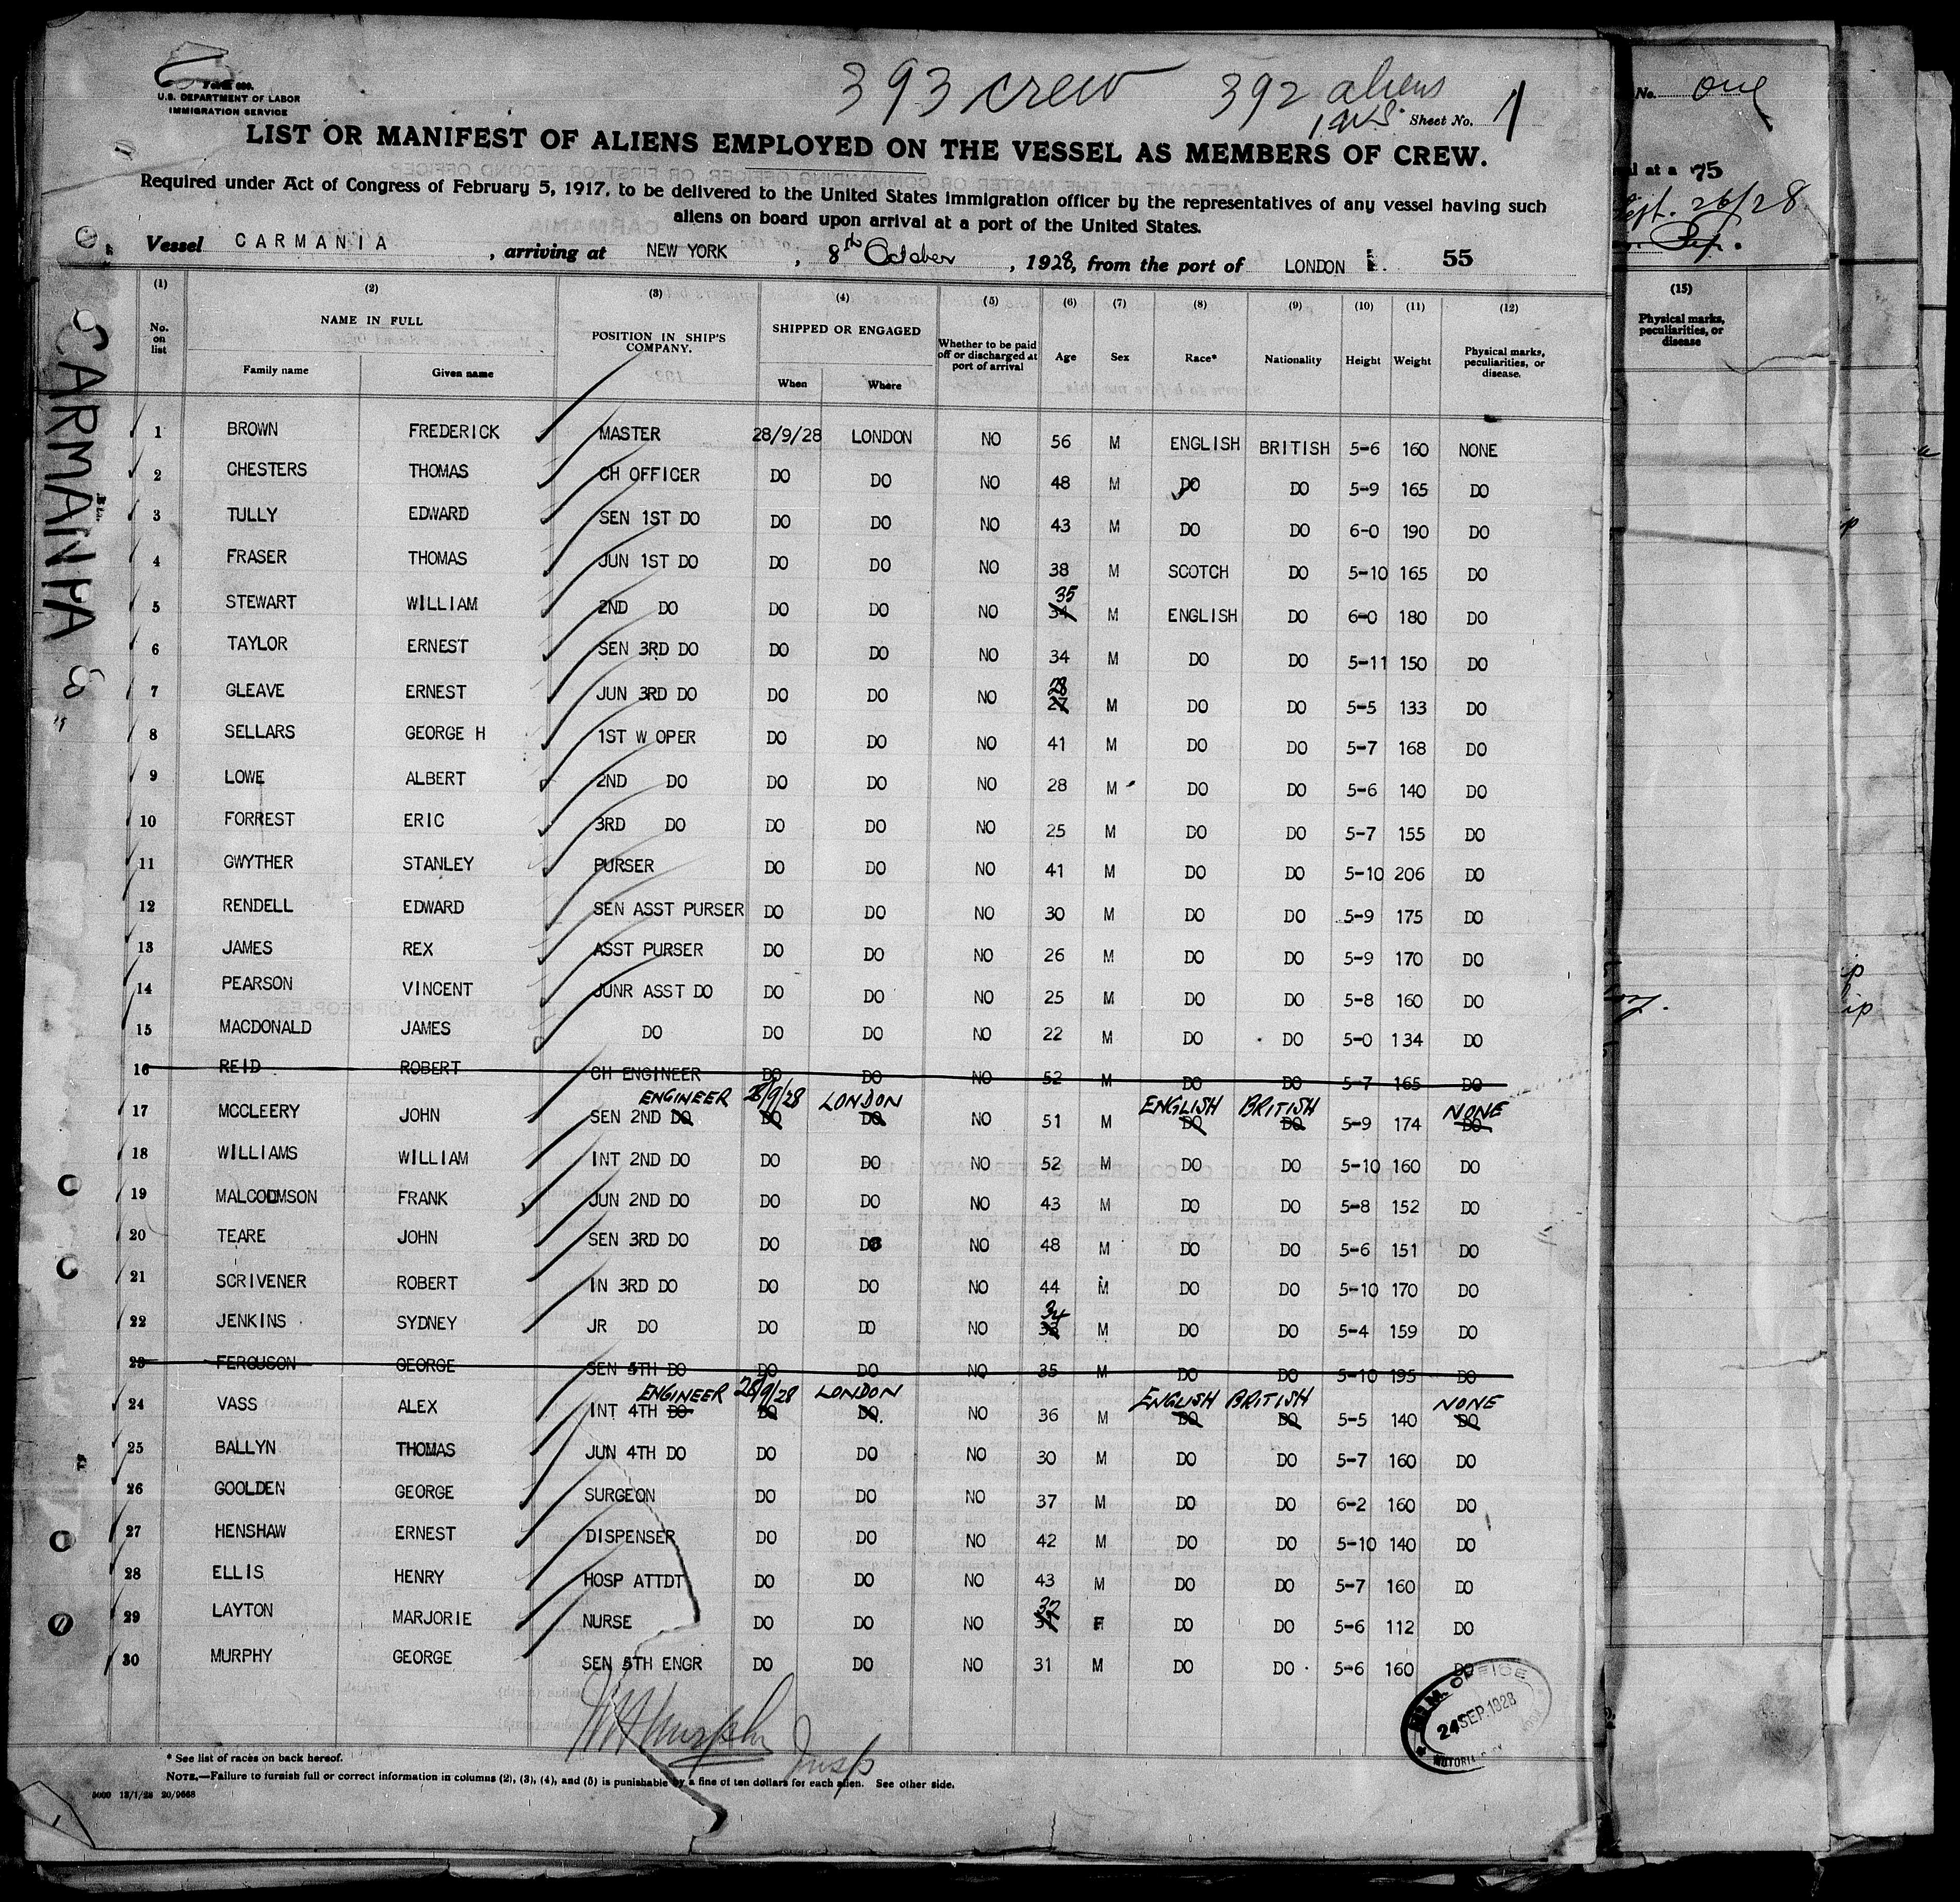 393 crew 392 aliens
1 U.S. Sheet No. 1
Form 689.
U.S. DEPARTMENT OF LABOR
IMMIGRATION SERVICE
LIST OR MANIFEST OF ALIENS EMPLOYED ON THE VESSEL AS MEMBERS OF CREW.
Required under Act of Congress of February 5, 1917, to be delivered to the United States immigration officer by the representatives of any vessel having such
aliens on board upon arrival at a port of the United States.
Vessel CARMANIA, arriving at NEW YORK, 8th October, 1928, from the port of LONDON E. 55
CARMANIA 8
(1) (2) (3) (4) (5) (6) (7) (8) (9) (10) (11) (12)
No. on list NAME IN FULL POSITION IN SHIP'S COMPANY. SHIPPED OR ENGAGED Whether to be paid off or discharged at port of arrival Age Sex Race* Nationality Height Weight Physical marks, peculiarities, or disease.
Family name Given name When Where
1 BROWN FREDERICK MASTER 28/9/28 LONDON NO 56 M ENGLISH BRITISH 5-6 160 NONE
2 CHESTERS THOMAS CH OFFICER DO DO NO 48 M DO DO 5-9 165 DO
3 TULLY EDWARD SEN 1ST DO DO DO NO 43 M DO DO 6-0 190 DO
4 FRASER THOMAS JUN 1ST DO DO DO NO 38 M SCOTCH DO 5-10 165 DO
5 STEWART WILLIAM 2ND DO DO DO NO 34 35 M ENGLISH DO 6-0 180 DO
6 TAYLOR ERNEST SEN 3RD DO DO DO NO 34 M DO DO 5-11 150 DO
7 GLEAVE ERNEST JUN 3RD DO DO DO NO 27 28 M DO DO 5-5 133 DO
8 SELLARS GEORGE H 1ST W OPER DO DO NO 41 M DO DO 5-7 168 DO
9 LOWE ALBERT 2ND DO DO DO NO 28 M DO DO 5-6 140 DO
10 FORREST ERIC 3RD DO DO DO NO 25 M DO DO 5-7 155 DO
11 GWYTHER STANLEY PURSER DO DO NO 41 M DO DO 5-10 206 DO
12 RENDELL EDWARD SEN ASST PURSER DO DO NO 30 M DO DO 5-9 175 DO
13 JAMES REX ASST PURSER DO DO NO 26 M DO DO 5-9 170 DO
14 PEARSON VINCENT JUNR ASST DO DO DO NO 25 M DO DO 5-8 160 DO
15 MACDONALD JAMES DO DO DO NO 22 M DO DO 5-0 134 DO
16 REID ROBERT CH ENGINEER DO DO NO 52 M DO DO 5-7 165 DO
ENGINEER 28/9/28 LONDON ENGLISH BRITISH NONE
17 MCCLEERY JOHN SEN 2ND DO DO DO NO 51 M DO DO 5-9 174 DO
18 WILLIAMS WILLIAM INT 2ND DO DO DO NO 52 M DO DO 5-10 160 DO
19 MALCOLMSON FRANK JUN 2ND DO DO DO NO 43 M DO DO 5-8 152 DO
20 TEARE JOHN SEN 3RD DO DO DO NO 48 M DO DO 5-6 151 DO
21 SCRIVENER ROBERT IN 3RD DO DO DO NO 44 M DO DO 5-10 170 DO
22 JENKINS SYDNEY JR DO DO DO NO 33 34 M DO DO 5-4 159 DO
23 FERGUSON GEORGE SEN 5TH DO DO DO NO 35 M DO DO 5-10 195 DO
ENGINEER 28/9/28 LONDON ENGLISH BRITISH NONE
24 VASS ALEX INT 4TH DO DO DO NO 36 M DO DO 5-5 140 DO
25 BALLYN THOMAS JUN 4TH DO DO DO NO 30 M DO DO 5-7 160 DO
26 GOOLDEN GEORGE SURGEON DO DO NO 37 M DO DO 6-2 160 DO
27 HENSHAW ERNEST DISPENSER DO DO NO 42 M DO DO 5-10 140 DO
28 ELLIS HENRY HOSP ATTDT DO DO NO 43 M DO DO 5-7 160 DO
29 LAYTON MARJORIE NURSE DO DO NO 32 F DO DO 5-6 112 DO
30 MURPHY GEORGE SEN 5TH ENGR DO DO NO 31 M DO DO 5-6 160 DO
Murphy Insp
IMM. OFFICE
24 SEP. 1928
* See list of races on back hereof.
NOTE.—Failure to furnish full or correct information in columns (2), (3), (4), and (5) is punishable by a fine of ten dollars for each alien. See other side.
5000 13/1/28 20/9668
No. one
al at a 75
Sept. 26/28
(15)
Physical marks,
peculiarities, or
disease